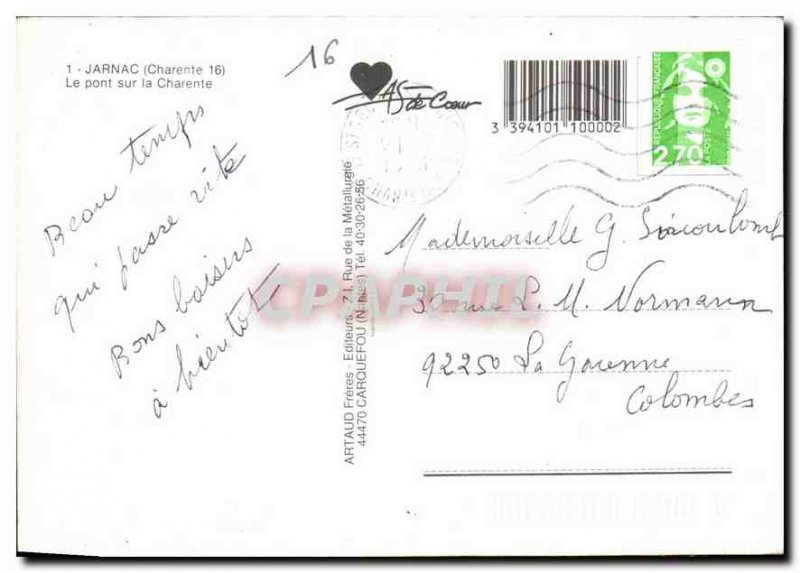 1 - JARNAC (Charente 16)
Le pont sur la Charente
16
AS de Cœur
3 394101 100002
RÉPUBLIQUE FRANÇAISE
2,70
LA POSTE
Beau temps
qui passe vite
Bons baisers
à bientôt
ARTAUD Frères - Editeurs - Z.I. Rue de la Métallurgie
44470 CARQUEFOU (Nantes) Tél. 40-30-26-56
CPAPHIL
Mademoiselle G.
30 rue P. M. Normann
92250 La Garenne
Colombes